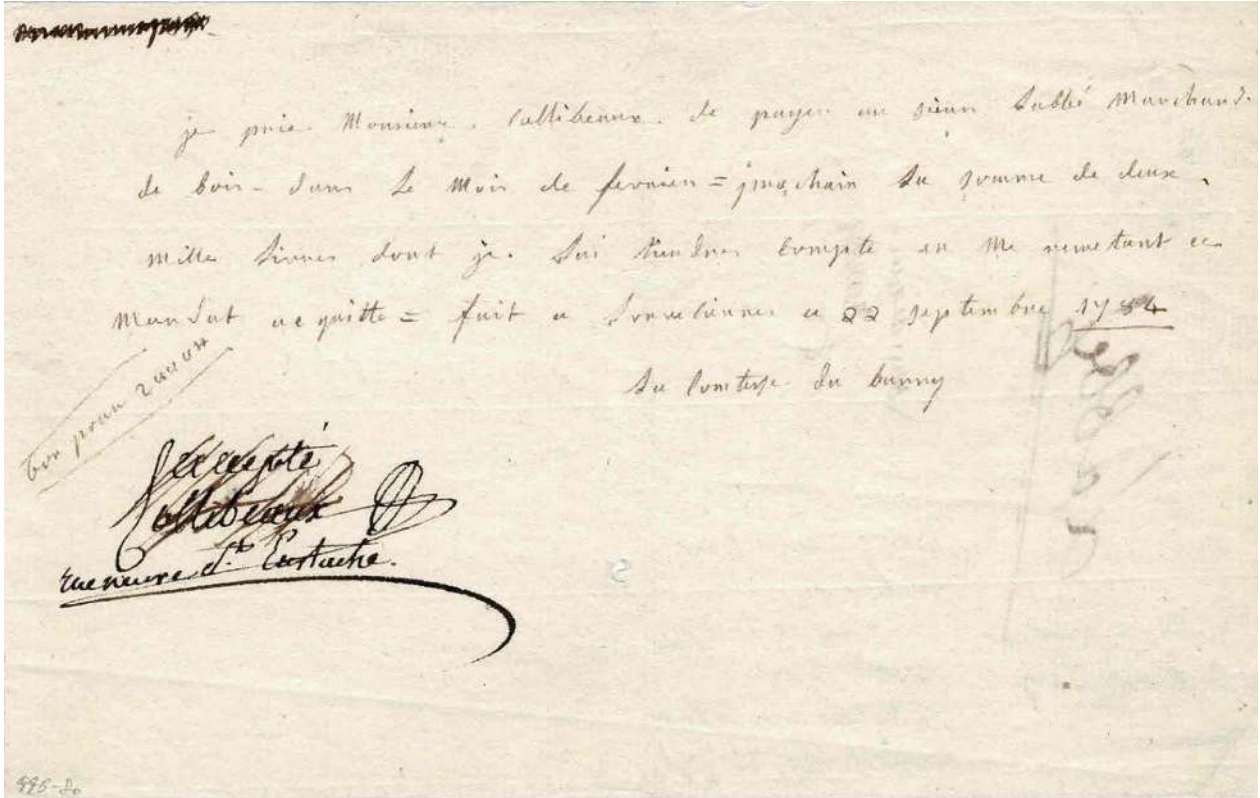 je prie Monsieur. Collibeaux. de payer au sieur Labbé Marchand.
de bois - dans Le Mois de fevrier = prochain La somme de deux.
mille Livres dont je. Lui tiendres Compte en Me remetant ce
Mandat acquitte = fait a Louveciennes ce 22 septembre 1784
La Comtesse du barry
bon pour 2000 lt
accepté
Collibeaux
rue neuve St. Eustache.
996-80